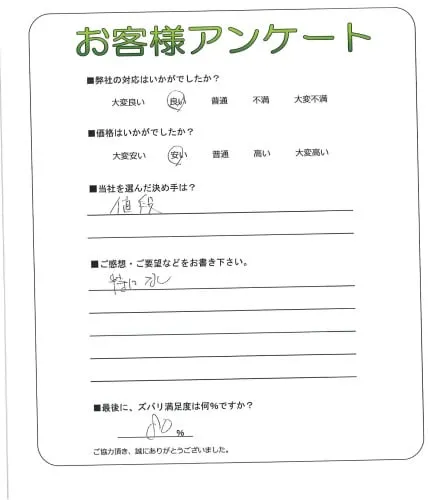 お客様アンケート
■弊社の対応はいかがでしたか？
大変良い 良い 普通 不満 大変不満
■価格はいかがでしたか？
大変安い 安い 普通 高い 大変高い
■当社を選んだ決め手は？
値段
■ご感想・ご要望などをお書き下さい。
特になし
■最後に、ズバリ満足度は何%ですか？
80 %
ご協力頂き、誠にありがとうございました。